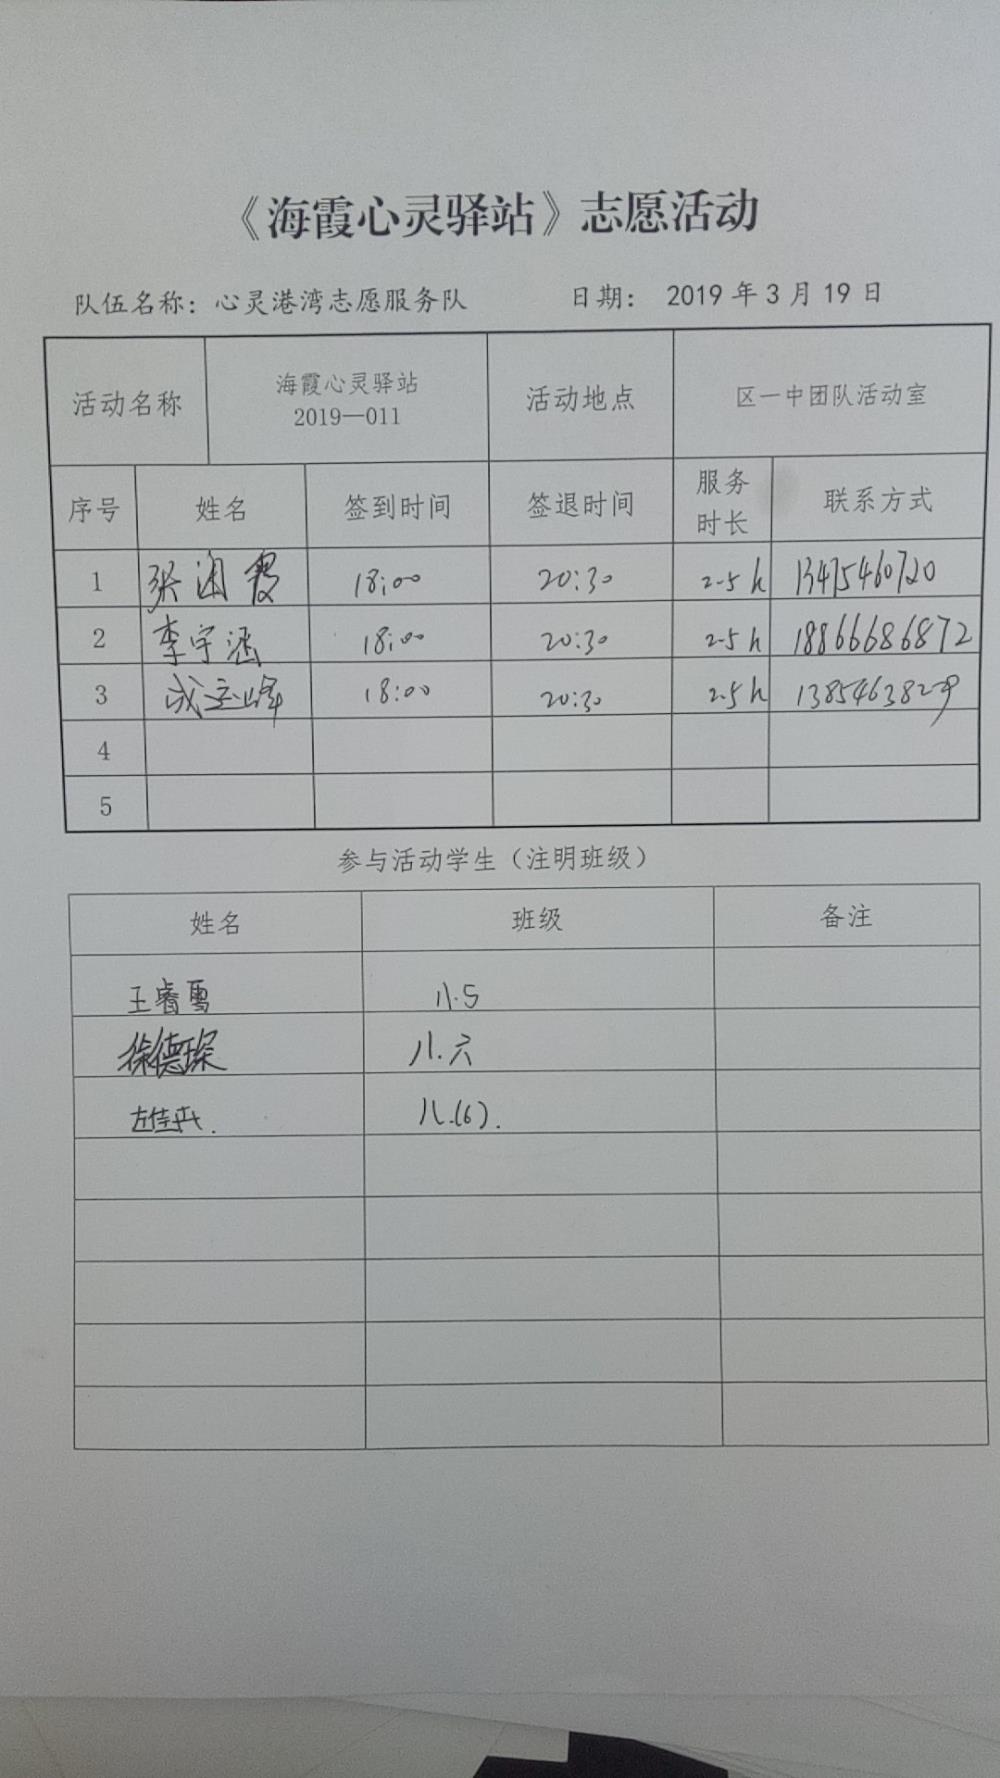 《海霞心灵驿站》志愿活动
队伍名称：心灵港湾志愿服务队 日期： 2019 年 3 月 19 日
活动名称 海霞心灵驿站 2019—011 活动地点 区一中团队活动室
序号 姓名 签到时间 签退时间 服务时长 联系方式
1 张 霞 18:00 20:30 2.5 h 13475460720
2 李宇涵 18:00 20:30 2.5 h 18866686872
3 成 峰 18:00 20:30 2.5 h
4
5
参与活动学生（注明班级）
姓名 班级 备注
王睿雪 八.5
徐德琛 八.六
左佳 八.(6).